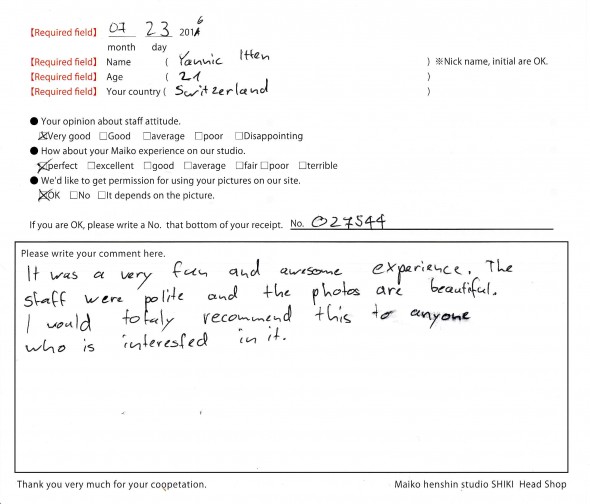 【Required field】 07 23 2016
month day
【Required field】 Name ( Yannic Itten ) ※Nick name, initial are OK.
【Required field】 Age ( 21 )
【Required field】 Your country ( Switzerland )
● Your opinion about staff attitude.
☒Very good □Good □average □poor □Disappointing
● How about your Maiko experience on our studio.
☒perfect □excellent □good □average □fair □poor □terrible
● We'd like to get permission for using your pictures on our site.
☒OK □No □It depends on the picture.
If you are OK, please write a No. that bottom of your receipt. No. 027544
Please write your comment here.
It was a very fun and awesome experience. The
staff were polite and the photos are beautiful.
I would totaly recommend this to anyone
who is interested in it.
Thank you very much for your coopetation. Maiko henshin studio SHIKI Head Shop